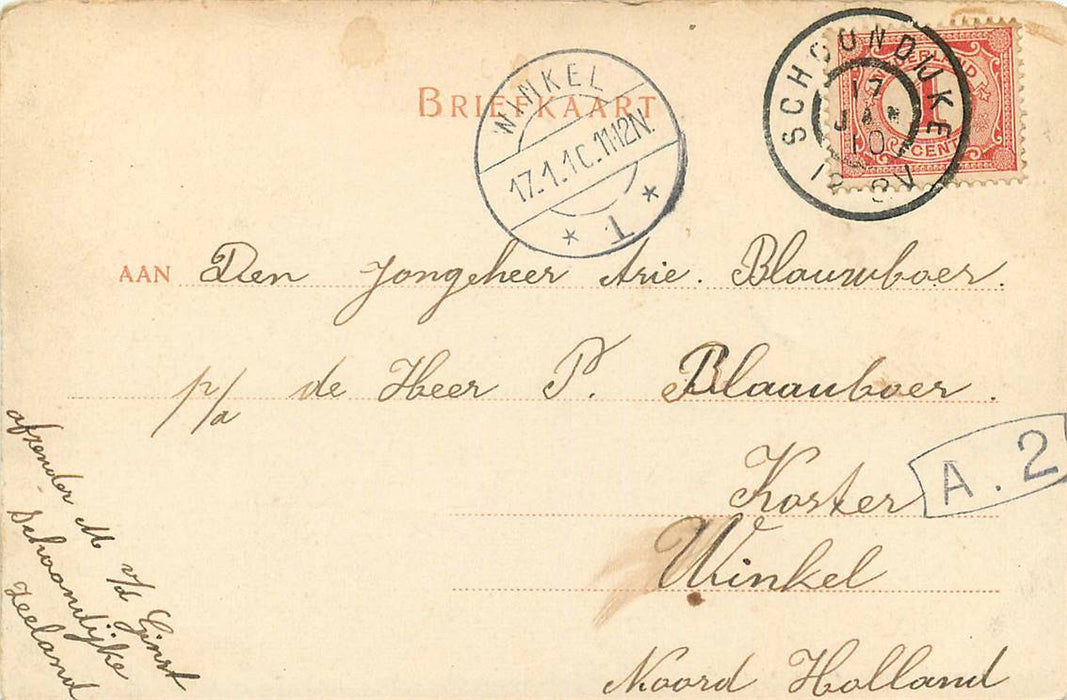 BRIEFKAART
WINKEL
17.1.10.11-12N.
1
SCHOONDIJKE
17
JAN
10
12-8V
NEDERLAND
1
CENT
AAN Den Jongeheer Arie. Blauwboer.
p/a de Heer P. Blaauboer.
Koster
A.2
Winkel
Noord Holland
afzender M v/d Ginst
Schoondijke
Zeeland